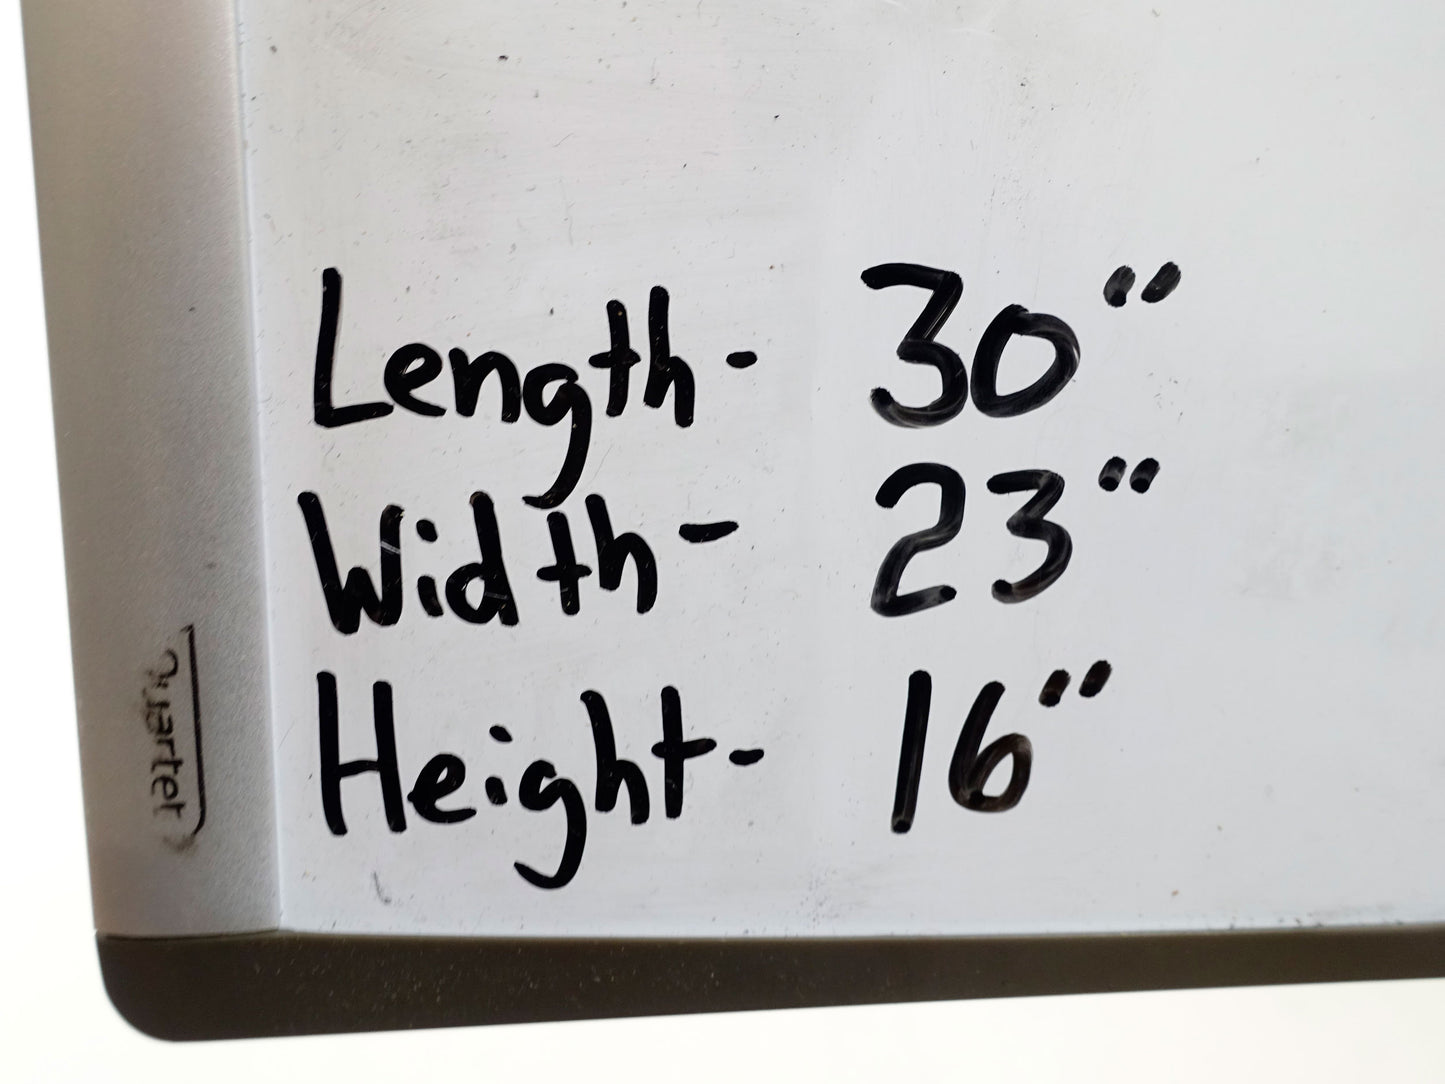 Length- 30"
Width- 23"
Height- 16"
Quartet